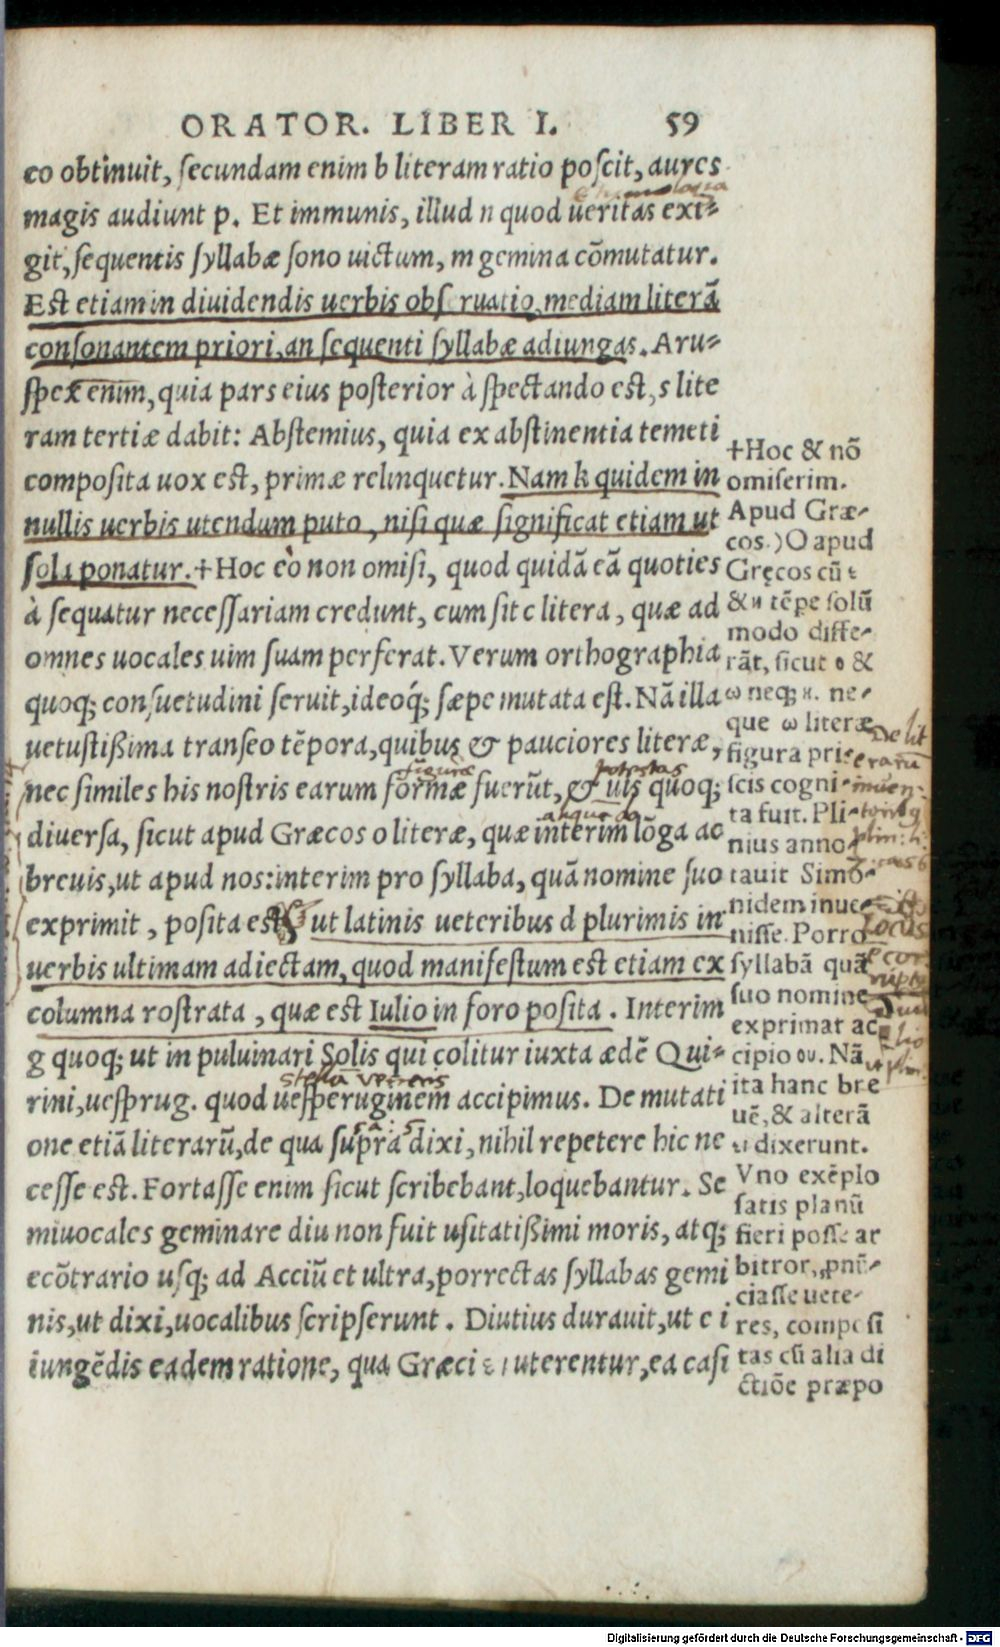 ORATOR. LIBER I. 59
co obtinuit, secundam enim b literam ratio poscit, aures
magis audiunt p. Et immunis, illud n quod ueritas exi-
git, sequentis syllabæ sono uictum, m gemina cõmutatur.
Est etiam in diuidendis uerbis obseruatio, mediam literã
consonantem priori, an sequenti syllabæ adiungas. Aru-
spex enim, quia pars eius posterior à spectando est, s lite
ram tertiæ dabit: Abstemius, quia ex abstinentia temeti
composita uox est, primæ relinquetur. Nam k quidem in
nullis uerbis utendum puto, nisi quæ significat etiam ut
sola ponatur. +Hoc eò non omisi, quod quidã eã quoties
à sequatur necessariam credunt, cum sit c litera, quæ ad
omnes uocales uim suam perferat. Verum orthographia
quoq; consuetudini seruit, ideoq́; sæpe mutata est. Nã illa
uetustißima transeo tẽpora, quibus & pauciores literæ,
figuræ potestas
nec similes his nostris earum formæ fuerũt, & uis quoq;
diuersa, sicut apud Græcos o literæ, quæ interim lõga ac
breuis, ut apud nos: interim pro syllaba, quã nomine suo
exprimit, posita est, ut latinis ueteribus d plurimis in
uerbis ultimam adiectam, quod manifestum est etiam ex
columna rostrata, quæ est Iulio in foro posita. Interim
g quoq; ut in puluinari Solis qui colitur iuxta ædẽ Qui-
stella Veneris
rini, uesprug. quod uesperuginem accipimus. De mutati
one etiã literarũ, de qua supra dixi, nihil repetere hic ne
cesse est. Fortasse enim sicut scribebant, loquebantur. Se
miuocales geminare diu non fuit usitatißimi moris, atq;
ecõtrario usq; ad Acciũ et ultra, porrectas syllabas gemi
nis, ut dixi, uocalibus scripserunt. Diutius durauit, ut e i
iungẽdis eadem ratione, qua Græci ει uterentur, ea casi
+Hoc & nõ
omiserim.
Apud Græ-
cos.) O apud
Gręcos cũ ε
& η tẽpe solũ
modo diffe-
rãt, sicut ο &
ω neq; η. ne-
que ω literæ
figura pri-
scis cogni-
ta fuit. Pli-
nius anno-
tauit Simo-
nidem inue-
nisse. Porro
syllabã quã
suo nomine
exprimat ac
cipio ου. Nã
ita hanc bre
uẽ, & alterã
ει dixerunt.
Vno exẽplo
satis planũ
fieri posse ar
bitror, ꝓnũ-
ciasse uete-
res, composi
tas cũ alia di
ctiõe præpo
De lit
erarũ
inuen-
Locus
Digitalisierung gefördert durch die Deutsche Forschungsgemeinschaft - DFG